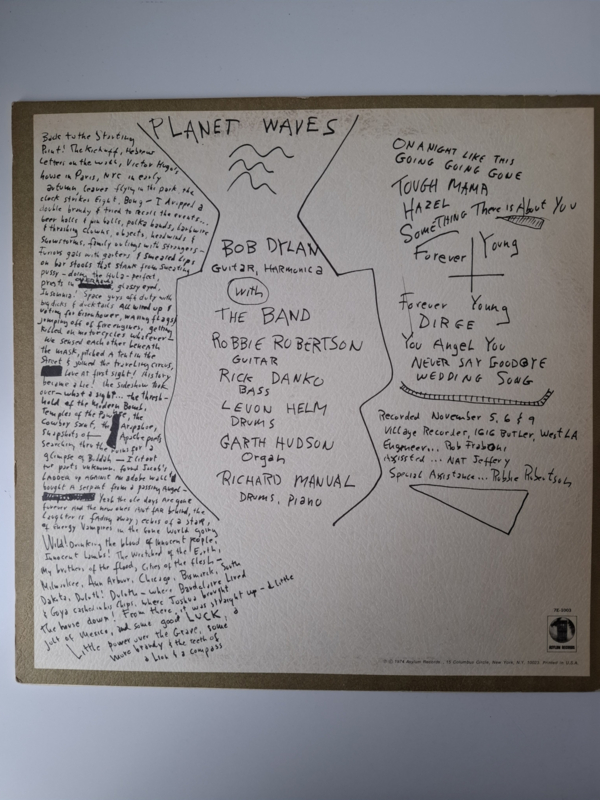 PLANET WAVES
Back to the Starting
Point! The Kickoff, Hebrew
Letters on the wall, Victor Hugo's
house in Paris, NYC in early
autumn, leaves flying in the park, the
clock strikes Eight. Bong - I dropped a
double brandy & tried to recall the events...
beer halls & pin balls, polka bands, barbwire
& thrashing clowns, objects, headwinds &
Snowstorms, family outings with strangers -
Furious gals with garters & smeared lips
on bar stools that stank from sweating
pussy - doing the Hula - perfect,
priests in glassy eyed,
Insomnia! Space guys off duty with
big dicks & ducktails All wired up &
voting for Eisenhower, waving flags &
jumping off of fire engines, getting
killed on motorcycles whatever -
We sensed each other beneath
the mask, pitched a tent in the
Street & joined the traveling circus,
love at first sight! History
became a Lie! the sideshow took
over - what a sight... the thresh-
hold of the Modern Bomb,
Temples of the the
Cowboy Saint, the Arapahoe,
Snapshots of Apache poets
Searching thru the ruins for a
glimpse of Buddah - I lit out
for parts unknown, found Jacob's
Ladder up against an adobe wall &
bought a serpent from a passing Angel -
Yeah the ole days Are gone
forever and the new ones Aint far behind, the
Laughter is fading away, echos of a star,
of Energy Vampires in the Gone World going
Wild! Drinking the blood of innocent people,
Innocent Lambs! The Wretched of the Earth,
My brothers of the flood, Cities of the flesh -
Milwaukee, Ann Arbor, Chicago, Bismarck, South
Dakota, Duluth! Duluth - where Baudelaire Lived
& Goya cashed in his Chips, where Joshua brought
the house down! From there, it was straight up - a little
jolt of Mexico, and some good LUCK, a
Little power over the Grave, some
more brandy & the teeth of
a Lion & a compass
BOB DYLAN
GUITAR, HARMONICA
with
THE BAND
ROBBIE ROBERTSON
GUITAR
RICK DANKO
BASS
LEVON HELM
DRUMS
GARTH HUDSON
Organ
RICHARD MANUAL
DRUMS, PIANO
ON A NIGHT LIKE THIS
GOING GOING GONE
TOUGH MAMA
HAZEL
SOMETHING There is About You
Forever Young
Forever Young
DIRGE
You Angel You
NEVER SAY GOODBYE
WEDDING SONG
Recorded November 5, 6 & 9
Village Recorder, 1616 Butler, West LA
Engineer... Rob Fraboni
Assissted... NAT Jeffery
Special Assistance... Robbie Robertson
7E-1003
ASYLUM RECORDS
© ℗ 1974 Asylum Records, 15 Columbus Circle, New York, N.Y. 10023. Printed in U.S.A.